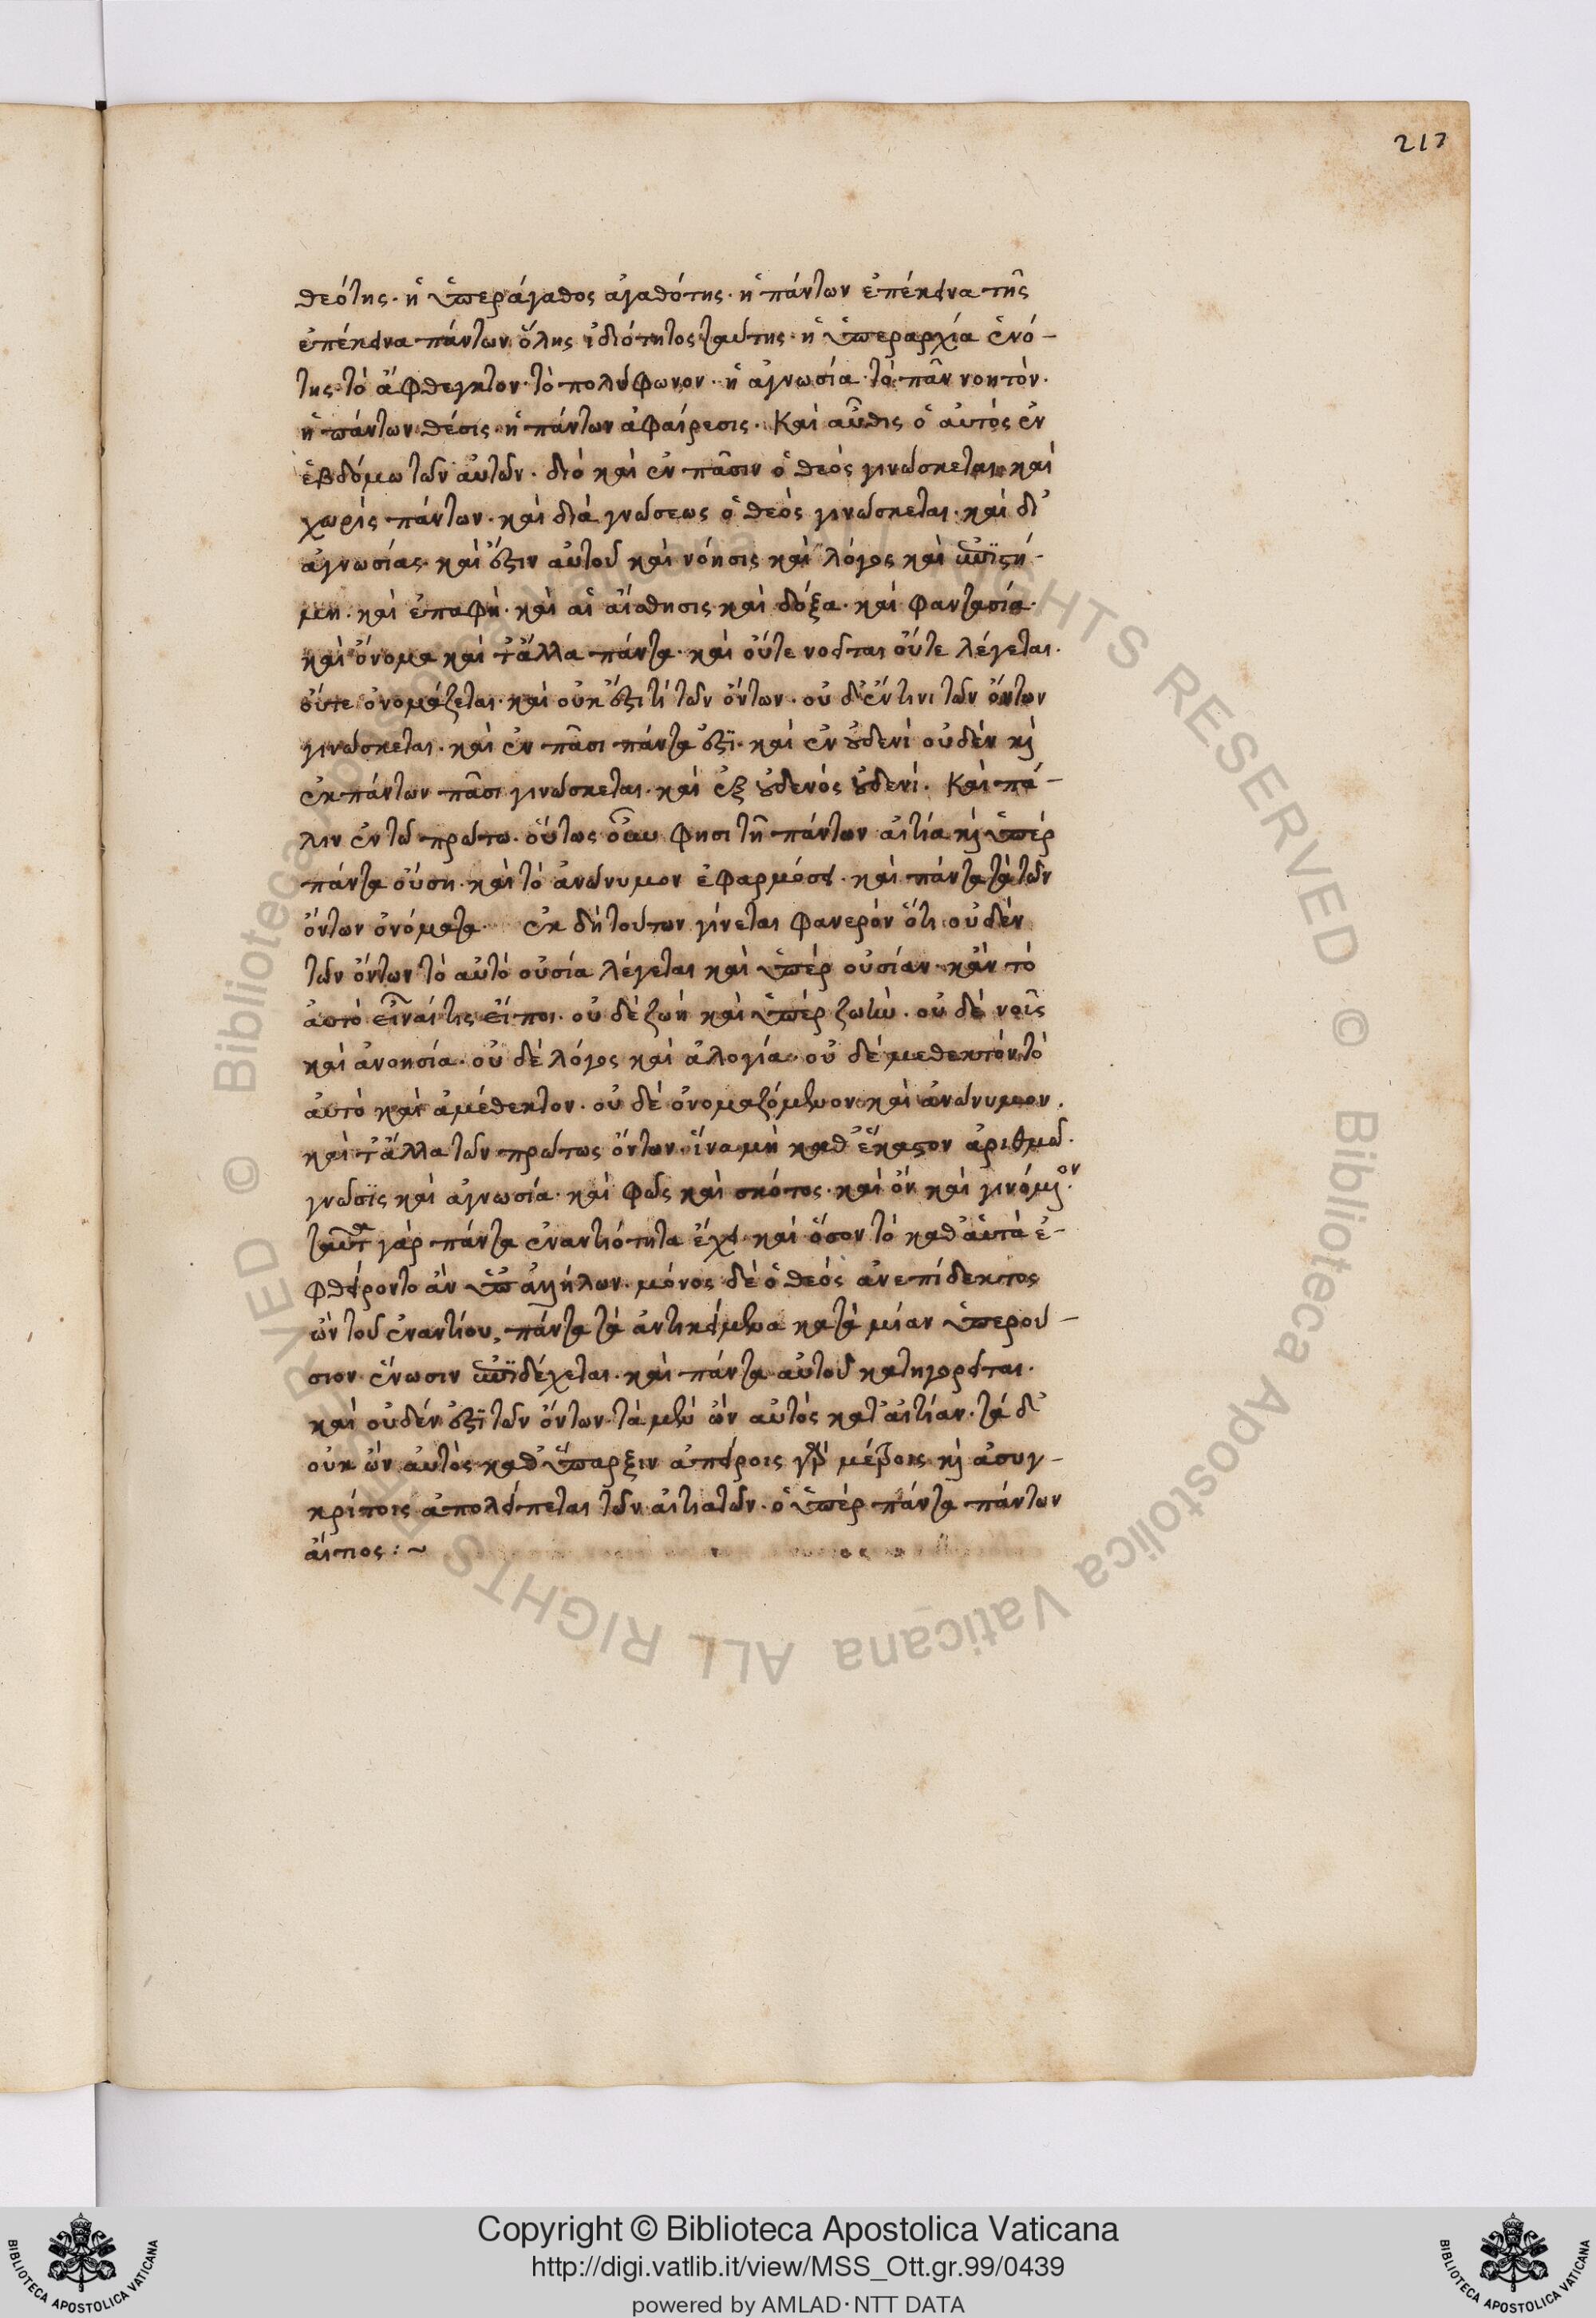 217
θεότης· ἡ ὑπεράγαθος ἀγαθότης· ἡ πάντων ἐπέκεινα τῆς
ἐπέκεινα πάντων ὅλης ἰδιότητος ταύτης· ἡ ὑπεραρχία ἑνό-
της· τὸ ἄφθεγκτον· τὸ πολύφωνον· ἡ ἀγνωσία· τὸ πᾶν νοητὸν·
ἡ πάντων θέσις· ἡ πάντων ἀφαίρεσις. Καὶ αὖθις ὁ αὐτὸς ἐν
ἑβδόμω τῶν αὐτῶν· διὸ καὶ ἐν πᾶσιν ὁ θεὸς γινώσκεται· καὶ
χωρὶς πάντων· καὶ διὰ γνώσεως ὁ θεὸς γινώσκεται· καὶ δι'
ἀγνωσίας· καὶ ἔστιν αὐτοῦ καὶ νόησις καὶ λόγος καὶ ἐπιστή-
μη· καὶ ἐπαφὴ· καὶ αἱ αἴσθησις καὶ δόξα· καὶ φαντασία·
καὶ ὄνομα καὶ τἄλλα πάντα· καὶ οὔτε νοεῖται οὔτε λέγεται·
οὔτε ὀνομάζεται· καὶ οὐκ ἔστι τί τῶν ὄντων· οὐ δ' ἔν τινι τῶν ὄντων
γινώσκεται· καὶ ἐν πᾶσι πάντα ἐστὶ· καὶ ἐν οὐδενὶ οὐδὲν κὶ
ἐκ πάντων πᾶσι γινώσκεται· καὶ ἐξ οὐδενὸς οὐδενὶ. Καὶ πά-
λιν ἐν τῶ πρώτω· οὕτως οὖν φησι τῆ πάντων αἰτία κὶ ὑπὲρ
πάντα οὔση· καὶ τὸ ἀνώνυμον ἐφαρμόσει· καὶ πάντα τὰ τῶν
ὄντων ὀνόματα· ἐκ δὴ τούτων γίνεται φανερὸν ὅτι οὐδὲν
τῶν ὄντων τὸ αὐτὸ οὐσία λέγεται καὶ ὑπὲρ οὐσίαν· κἂν τὸ
αὐτὸ εἶναί τις εἴποι· οὐ δὲ ζωὴ καὶ ὑπὲρ ζωὴν· οὐ δὲ νοῦς
καὶ ἀνοησία· οὐ δὲ λόγος καὶ ἀλογία· οὐ δὲ μεθεκτὸν τὸ
αὐτὸ καὶ ἀμέθεκτον· οὐ δὲ ὀνομαζόμενον καὶ ἀνώνυμον.
καὶ τἄλλα τῶν πρώτως ὄντων· ἵνα μὴ καθ' ἕκαστον ἀριθμῶ·
γνῶσις καὶ ἀγνωσία· καὶ φῶς καὶ σκότος· καὶ ὂν καὶ γινόμενον·
ταῦτα γὰρ πάντα ἐναντιότητα ἔχει· καὶ ὅσον τὸ καθ' αὑτὰ ἐ-
φθείροντο ἂν ὑπ' ἀλλήλων· μόνος δὲ ὁ θεὸς ἀνεπίδεκτος
ὢν τοῦ ἐναντίου, πάντα τὰ ἀντικείμενα κατὰ μίαν ὑπερού-
σιον ἕνωσιν ἐπιδέχεται· καὶ πάντα αὐτοῦ κατηγορεῖται·
καὶ οὐδέν ἐστὶ τῶν ὄντων· τὰ μὲν ὢν αὐτὸς κατ' αἰτίαν· τὰ δ'
οὐκ ὢν αὐτὸς καθ' ὕπαρξιν ἀπείροις γὰρ μέτροις κὶ ἀσυγ-
κρίτοις ἀπολείπεται τῶν αἰτιατῶν· ὁ ὑπὲρ πάντα πάντων
αἴτιος : ~
© Biblioteca Apostolica Vaticana ALL RIGHTS RESERVED © Biblioteca Apostolica Vaticana ALL RIGHTS RESERVED
Copyright © Biblioteca Apostolica Vaticana
http://digi.vatlib.it/view/MSS_Ott.gr.99/0439
powered by AMLAD·NTT DATA
BIBLIOTECA APOSTOLICA VATICANA
BIBLIOTECA APOSTOLICA VATICANA